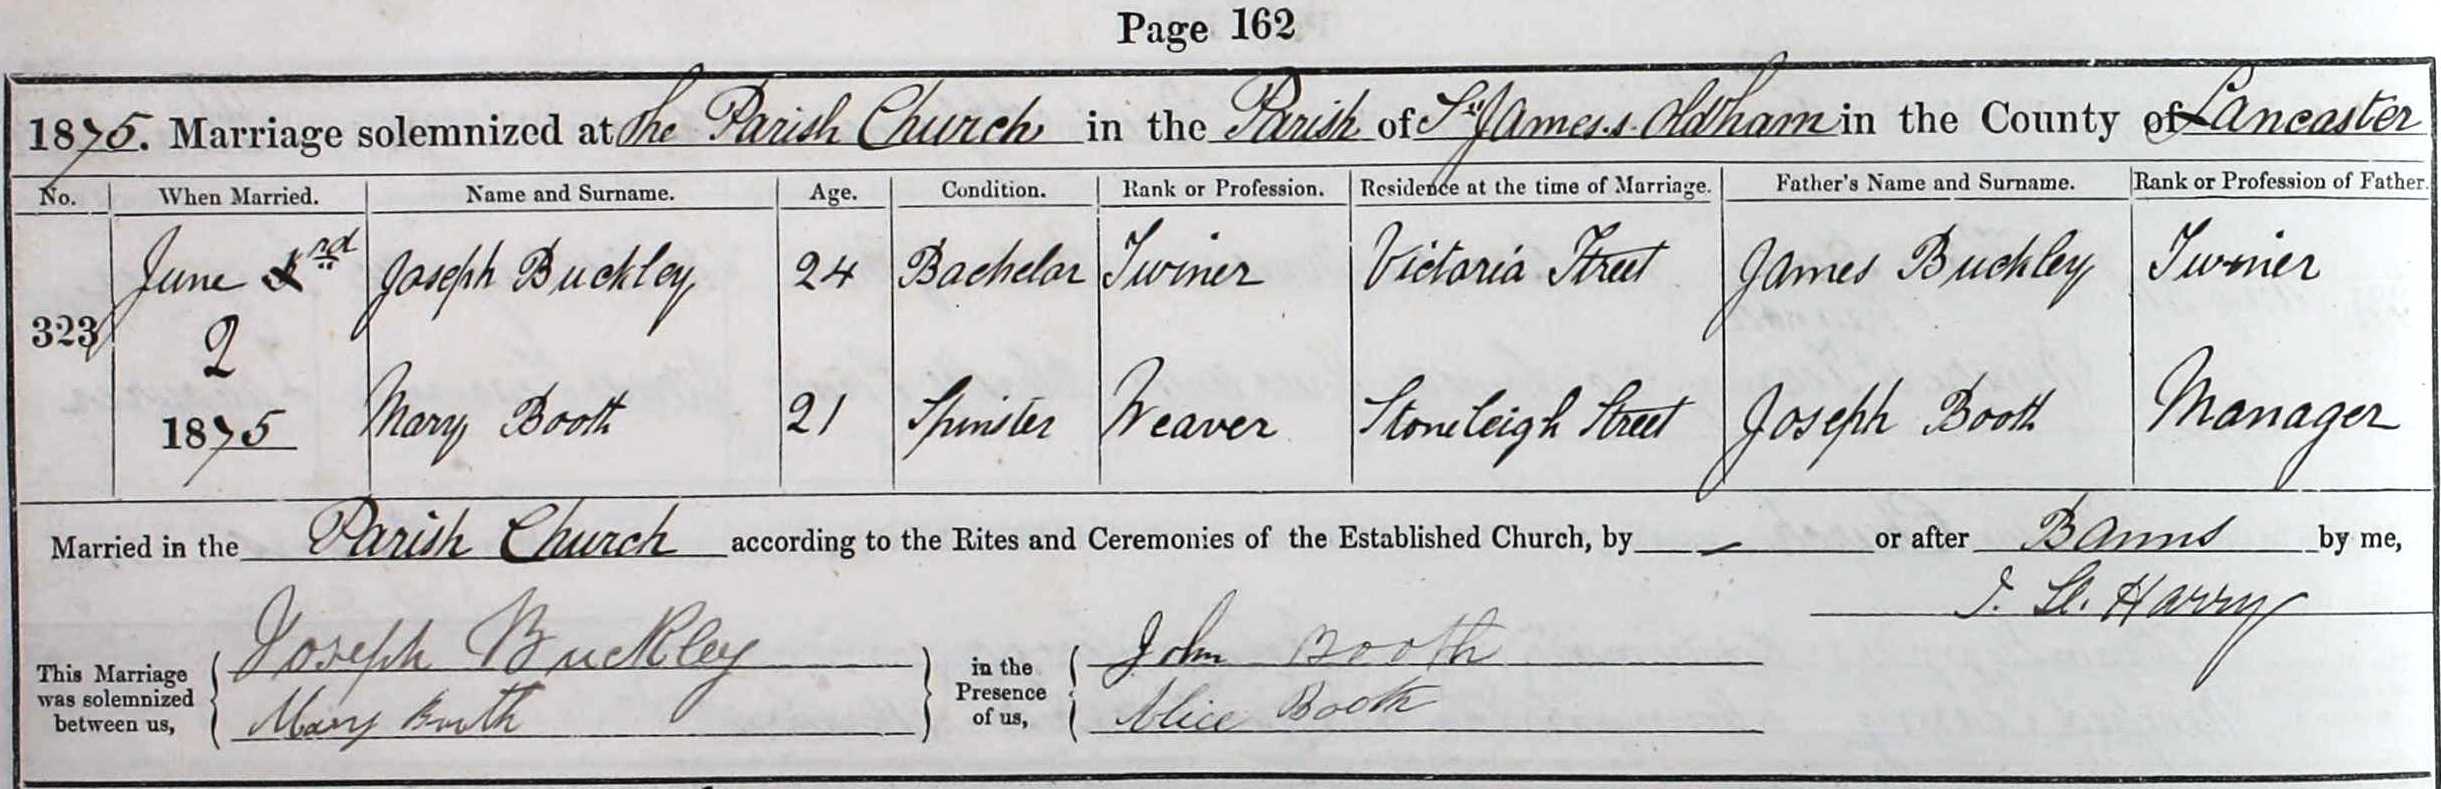 Page 162
1875. Marriage solemnized at The Parish Church in the Parish of St James.s. Oldham in the County of Lancaster
No. When Married. Name and Surname. Age. Condition. Rank or Profession. Residence at the time of Marriage. Father's Name and Surname. Rank or Profession of Father.
June rd Joseph Buckley 24 Bachelor Twiner Victoria Street James Buckley Twiner
323 2
1875 Mary Booth 21 Spinster Weaver Stoneleigh Street Joseph Booth Manager
Married in the Parish Church according to the Rites and Ceremonies of the Established Church, by — or after Banns by me,
Harry
Joseph Buckley John Booth
This Marriage was solemnized between us, in the Presence of us,
Mary Booth Alice Booth